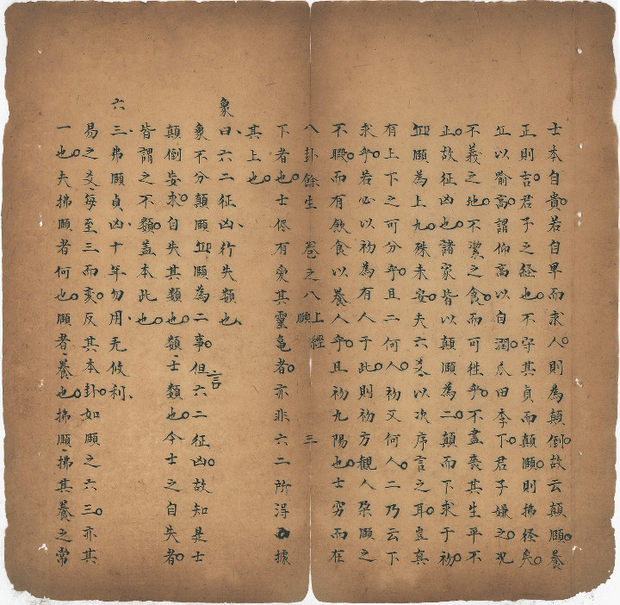 士本自貴若自卑而求人則為顛倒故云顛頤養
正則言君子之經也不守其貞而顛頤則拂經矣
丘以喻高謂仰高以自潤瓜田李下君子嫌之况
不義之地不潔之食而可往乎不盡喪其生平不
止故征凶也諸家皆以顛頤為二顛而下求于初
丘頤為上九殊未安夫六爻以次序言之耳豈真
有上下之可分乎且二何人初又何人二乃云下
求乎若必以初為有人于此則初方觀人朶頤之
不暇而有飲食以養人乎且初九陽也士窮而在
八卦餘生 卷之八 上經 頤 三
下者也士侭有愛其靈龜者亦非六二所得據
其上也
象曰六二征凶行失類也
象不分顛頤丘頤為二事但言六二征凶故知是士
顛倒妄求自失其類也士類也今士之自失者
皆謂之不類蓋本此也
六三弗頤貞凶十年勿用无攸利
易之爻每至三而变反其本卦如頤之六三亦其
一也夫拂頤者何也頤者養也拂頤拂其養之常